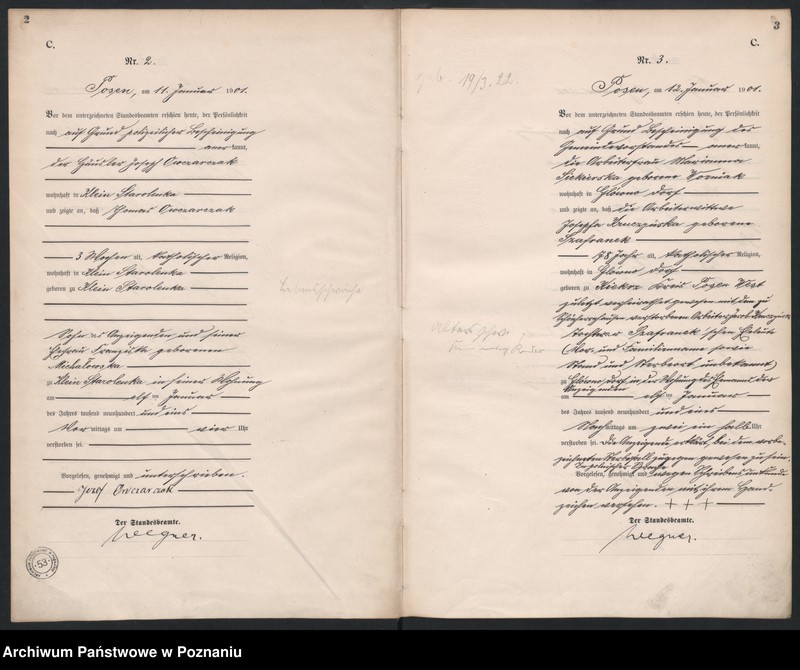 2
C.
Nr. 2.
Posen, am 11. Januar 1901.
Vor dem unterzeichneten Standesbeamten erschien heute, der Persönlichkeit
nach auf Grund polizeilicher Bescheinigung
anerkannt,
der Häusler Joseph Owczarczak
wohnhaft in Klein Starolenka
und zeigte an, daß Thomas Owczarczak
3 Wochen alt, katholischer Religion,
wohnhaft in Klein Starolenka
geboren zu Klein Starolenka
Sohn des Anzeigenden und seiner
Ehefrau Franziska geborenen
Michałowska
zu Klein Starolenka in seiner Wohnung
am elften Januar
des Jahres tausend neunhundert und eins
Vormittags um vier Uhr
verstorben sei.
Vorgelesen, genehmigt und unterschrieben.
Józef Owczarczak
Der Standesbeamte.
Wegner.
53
Lebensschwäche
3
C.
19/3. 22.
Nr. 3.
Posen, am 12. Januar 1901.
Vor dem unterzeichneten Standesbeamten erschien heute, der Persönlichkeit
nach auf Grund Bescheinigung des
Gemeindevorstandes anerkannt,
die Arbeiterfrau Marianna
geborene Woźniak
wohnhaft in Glowno Dorf
und zeigte an, daß die Arbeiterwittwe
Josepha geborene
Szafranek
78 Jahr alt, katholischer Religion,
wohnhaft in Glowno Dorf
geboren zu Kiekrz Kreis Posen West
zuletzt verheirathet gewesen mit dem zu
verstorbenen Arbeiter
Tochter der Szafranek'schen Eheleute
(Vor- und Familienname sowie
Stand und Sterbeort unbekannt)
zu Glowno Dorf in der Wohnung des Ehemanns der
Anzeigenden
am elften Januar
des Jahres tausend neunhundert und eins
Nachmittags um zwei ein halb Uhr
verstorben sei. Die Anzeigende erklärt, bei dem vorbe-
zeichneten Sterbefall zugegen gewesen zu sein.
In polnischer Sprache
Vorgelesen, genehmigt und wegen Schreibensunkunde
von der Anzeigenden mit ihrem Hand-
zeichen versehen. + + +
Der Standesbeamte.
Wegner.
Archiwum Państwowe w Poznaniu